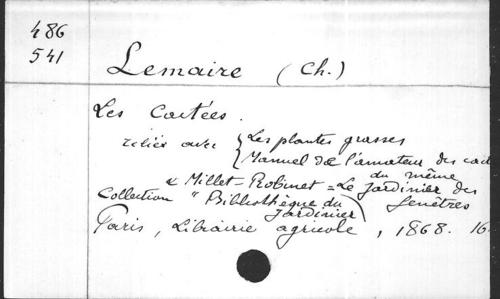 486
541
Lemaire (Ch.)
Les Cactées.
reliés avec { Les plantes grasses
Manuel de l'amateur des cact
du même
& Millet-Robinet = Le Jardinier des
fenêtres
Collection "Bibliothèque du
Jardinier
Paris, Librairie agricole, 1868. 16.